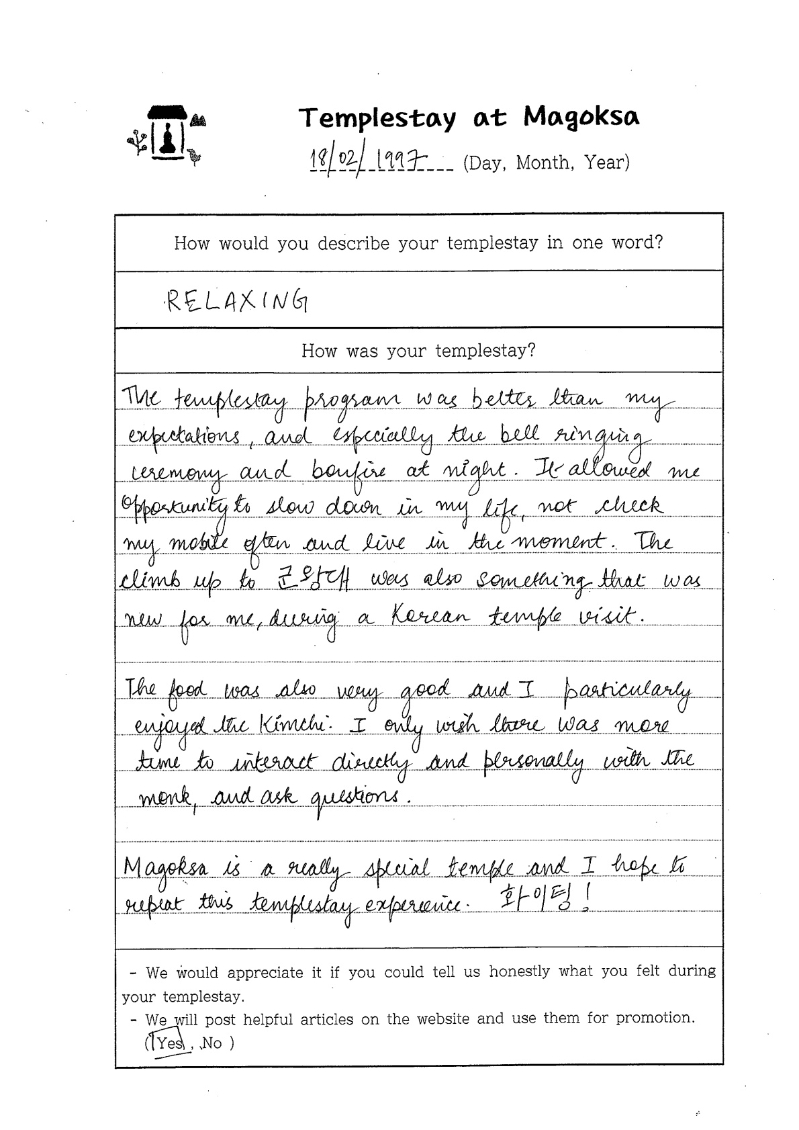 Templestay at Magoksa
18/02/1997 (Day, Month, Year)
How would you describe your templestay in one word?
RELAXING
How was your templestay?
The templestay program was better than my
expectations, and especially the bell ringing
ceremony and bonfire at night. It allowed me
opportunity to slow down in my life, not check
my mobile often and live in the moment. The
climb up to 군왕대 was also something that was
new for me, during a Korean temple visit.
The food was also very good and I particularly
enjoyed the Kimchi. I only wish there was more
time to interact directly and personally with the
monk, and ask questions.
Magoksa is a really special temple and I hope to
repeat this templestay experience. 화이팅!
- We would appreciate it if you could tell us honestly what you felt during
your templestay.
- We will post helpful articles on the website and use them for promotion.
(Yes, No )